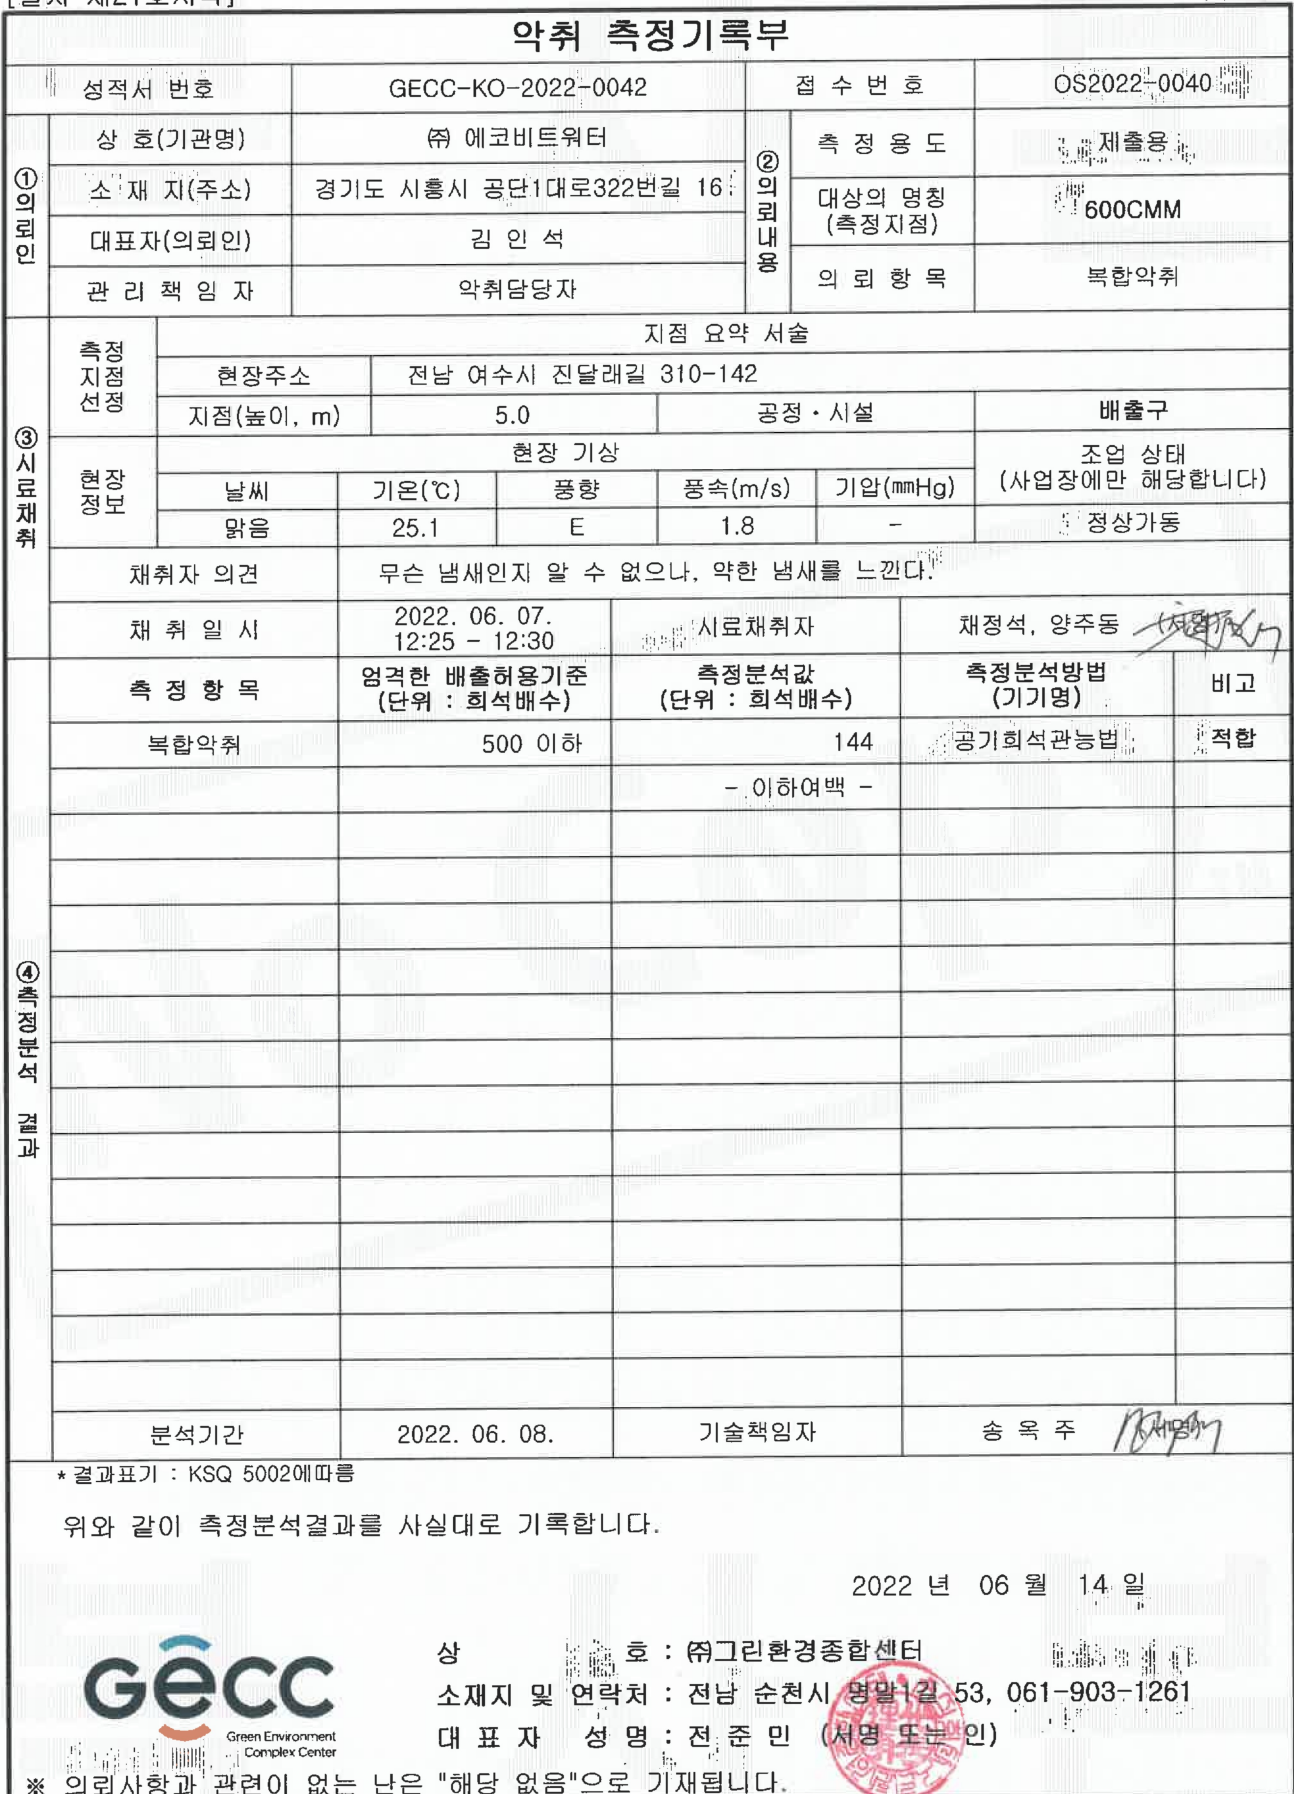 악취 측정기록부
성적서 번호 GECC-KO-2022-0042 접 수 번 호 OS2022-0040
①의뢰인
상 호(기관명) ㈜ 에코비트워터
소 재 지(주소) 경기도 시흥시 공단1대로322번길 16
대표자(의뢰인) 김 인 석
관 리 책 임 자 악취담당자
②의뢰내용
측 정 용 도 제출용
대상의 명칭
(측정지점) 600CMM
의 뢰 항 목 복합악취
③시료채취
측정
지점
선정
지점 요약 서술
현장주소 전남 여수시 진달래길 310-142
지점(높이, m) 5.0 공정·시설 배출구
현장
정보
현장 기상
조업 상태
(사업장에만 해당합니다)
날씨 기온(℃) 풍향 풍속(m/s) 기압(㎜Hg)
맑음 25.1 E 1.8 - 정상가동
채취자 의견 무슨 냄새인지 알 수 없으나, 약한 냄새를 느낀다.
채 취 일 시 2022. 06. 07.
12:25 - 12:30
시료채취자 채정석, 양주동
④측정분석 결과
측 정 항 목 엄격한 배출허용기준
(단위 : 희석배수)
측정분석값
(단위 : 희석배수)
측정분석방법
(기기명)
비고
복합악취 500 이하 144 공기희석관능법 적합
- 이하여백 -
분석기간 2022. 06. 08. 기술책임자 송 옥 주
* 결과표기 : KSQ 5002에따름
위와 같이 측정분석결과를 사실대로 기록합니다.
2022 년 06 월 14 일
GECC
Green Environment
Complex Center
상 호 : ㈜그린환경종합센터
소재지 및 연락처 : 전남 순천시 명말1길 53, 061-903-1261
대 표 자 성 명 : 전 준 민 (서명 또는 인)
※ 의뢰사항과 관련이 없는 난은 "해당 없음"으로 기재됩니다.